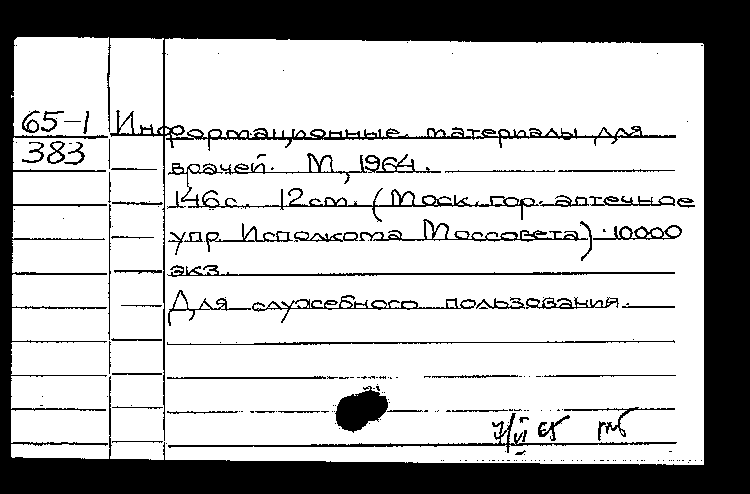 65-1 Информационные материалы для
383 врачей. М, 1964.
146с. 12см. (Моск. гор. аптечное
упр. Исполкома Моссовета). 10000
экз.
Для служебного пользования.
7/VI 65